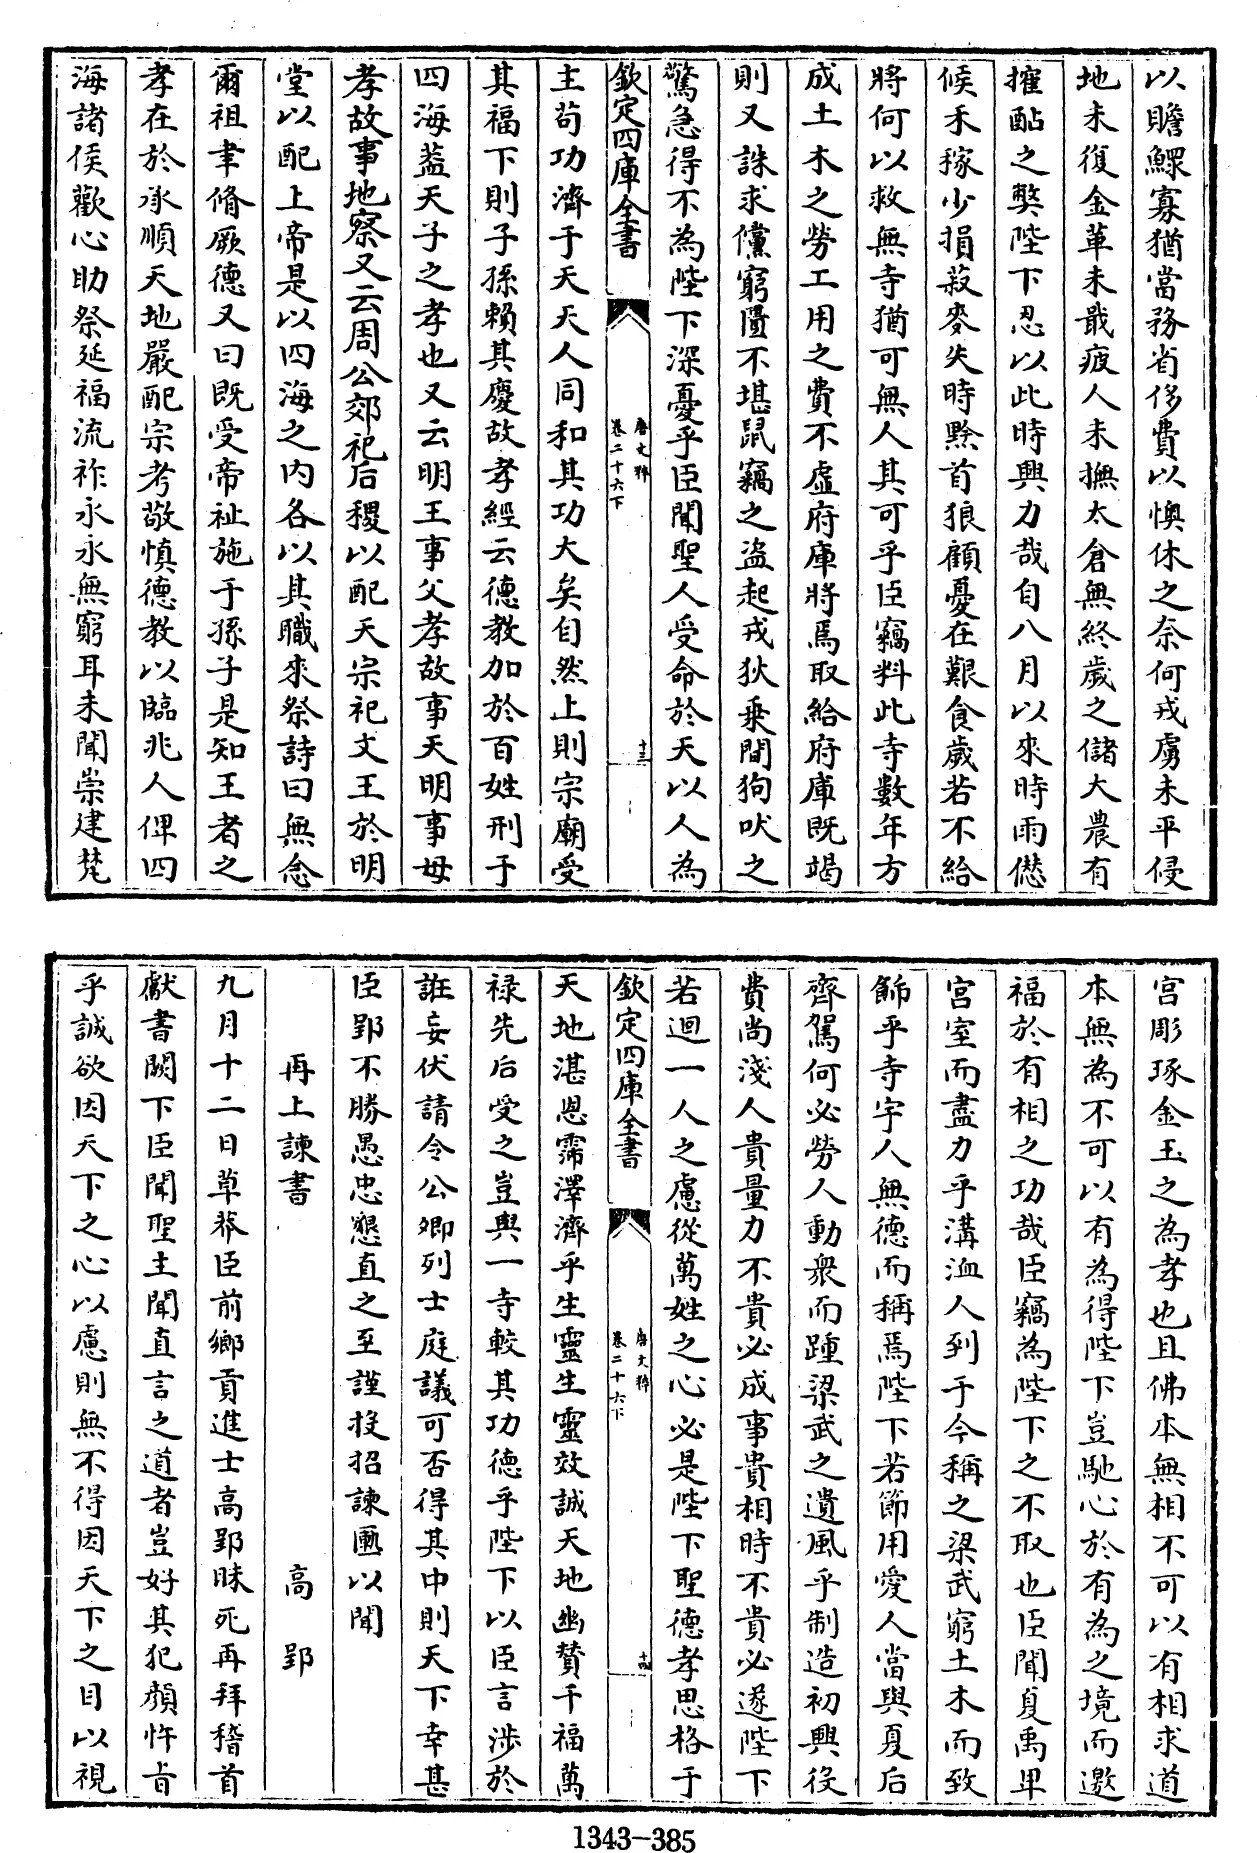 以贍鰥寡猶當務省侈費以懊休之奈何戎虜未平侵
地未復金革未戢疲人未撫太倉無終歲之儲大農有
搉酤之弊陛下忍以此時興力哉自八月以來時雨愆
候禾稼少損菽麥失時黔首狼顧憂在艱食歲若不給
將何以救無寺猶可無人其可乎臣竊料此寺數年方
成土木之勞工用之費不虛府庫將焉取給府庫既竭
則又誅求儻窮匱不堪鼠竊之盜起戎狄乗間狗吠之
驚急得不為陛下深憂乎臣聞聖人受命於天以人為
欽定四庫全書
唐文粹
卷二十六下
十三
主苟功濟于天天人同和其功大矣自然上則宗廟受
其福下則子孫賴其慶故孝經云德教加於百姓刑于
四海葢天子之孝也又云明王事父孝故事天明事母
孝故事地察又云周公郊祀后稷以配天宗祀文王於明
堂以配上帝是以四海之内各以其職來祭詩曰無念
爾祖聿脩厥德又曰既受帝祉施于孫子是知王者之
孝在於承順天地嚴配宗考敬慎德教以臨兆人俾四
海諸侯歡心助祭延福流祚永永無窮耳未聞崇建梵
宮彫琢金玉之為孝也且佛本無相不可以有相求道
本無為不可以有為得陛下豈馳心於有為之境而邀
福於有相之功哉臣竊為陛下之不取也臣聞夏禹卑
宮室而盡力乎溝洫人到于今稱之梁武窮土木而致
飾乎寺宇人無德而稱焉陛下若節用愛人當與夏后
齊駕何必勞人動衆而踵梁武之遺風乎制造初興役
費尚淺人貴量力不貴必成事貴相時不貴必遂陛下
若迴一人之慮從萬姓之心必是陛下聖德孝思格于
欽定四庫全書
唐文粹
卷二十六下
十四
天地湛恩霈澤濟乎生靈生靈效誠天地幽贊千福萬
禄先后受之豈與一寺較其功德乎陛下以臣言涉於
誑妄伏請令公卿列士庭議可否得其中則天下幸甚
臣郢不勝愚忠懇直之至謹投招諫匭以聞
再上諫書　高郢
九月十二日草莽臣前鄉貢進士高郢昧死再拜稽首
獻書闕下臣聞聖主聞直言之道者豈好其犯顏忤旨
乎誠欲因天下之心以慮則無不得因天下之目以視
1343-385